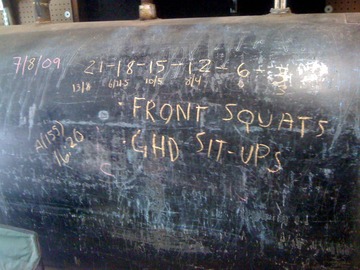 7/8/09
21-18-15-12-6-3
13/8 10/5 8/4 6
· FRONT SQUATS
· GHD SIT-UPS
A(155)
16:20